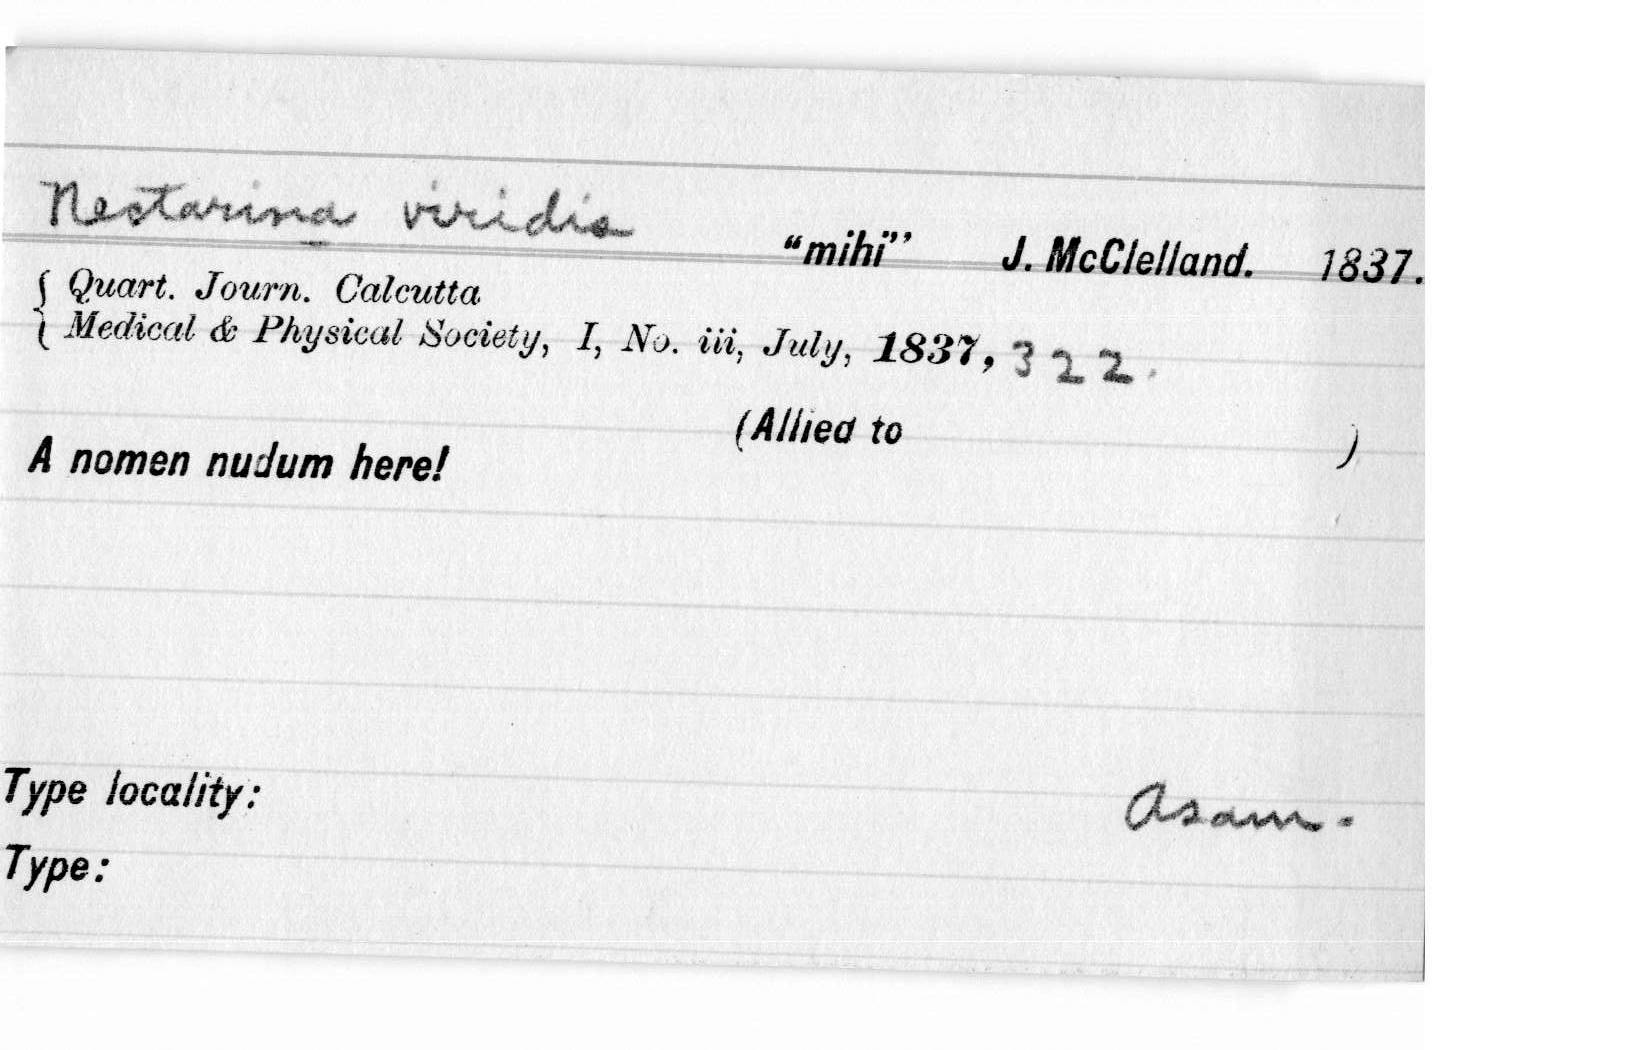 Nestarina viridis "mihi" J. McClelland. 1837.
Quart. Journ. Calcutta
Medical & Physical Society, I, No. iii, July, 1837, 322.
(Allied to )
A nomen nudum here!
Type locality: Asam.
Type: